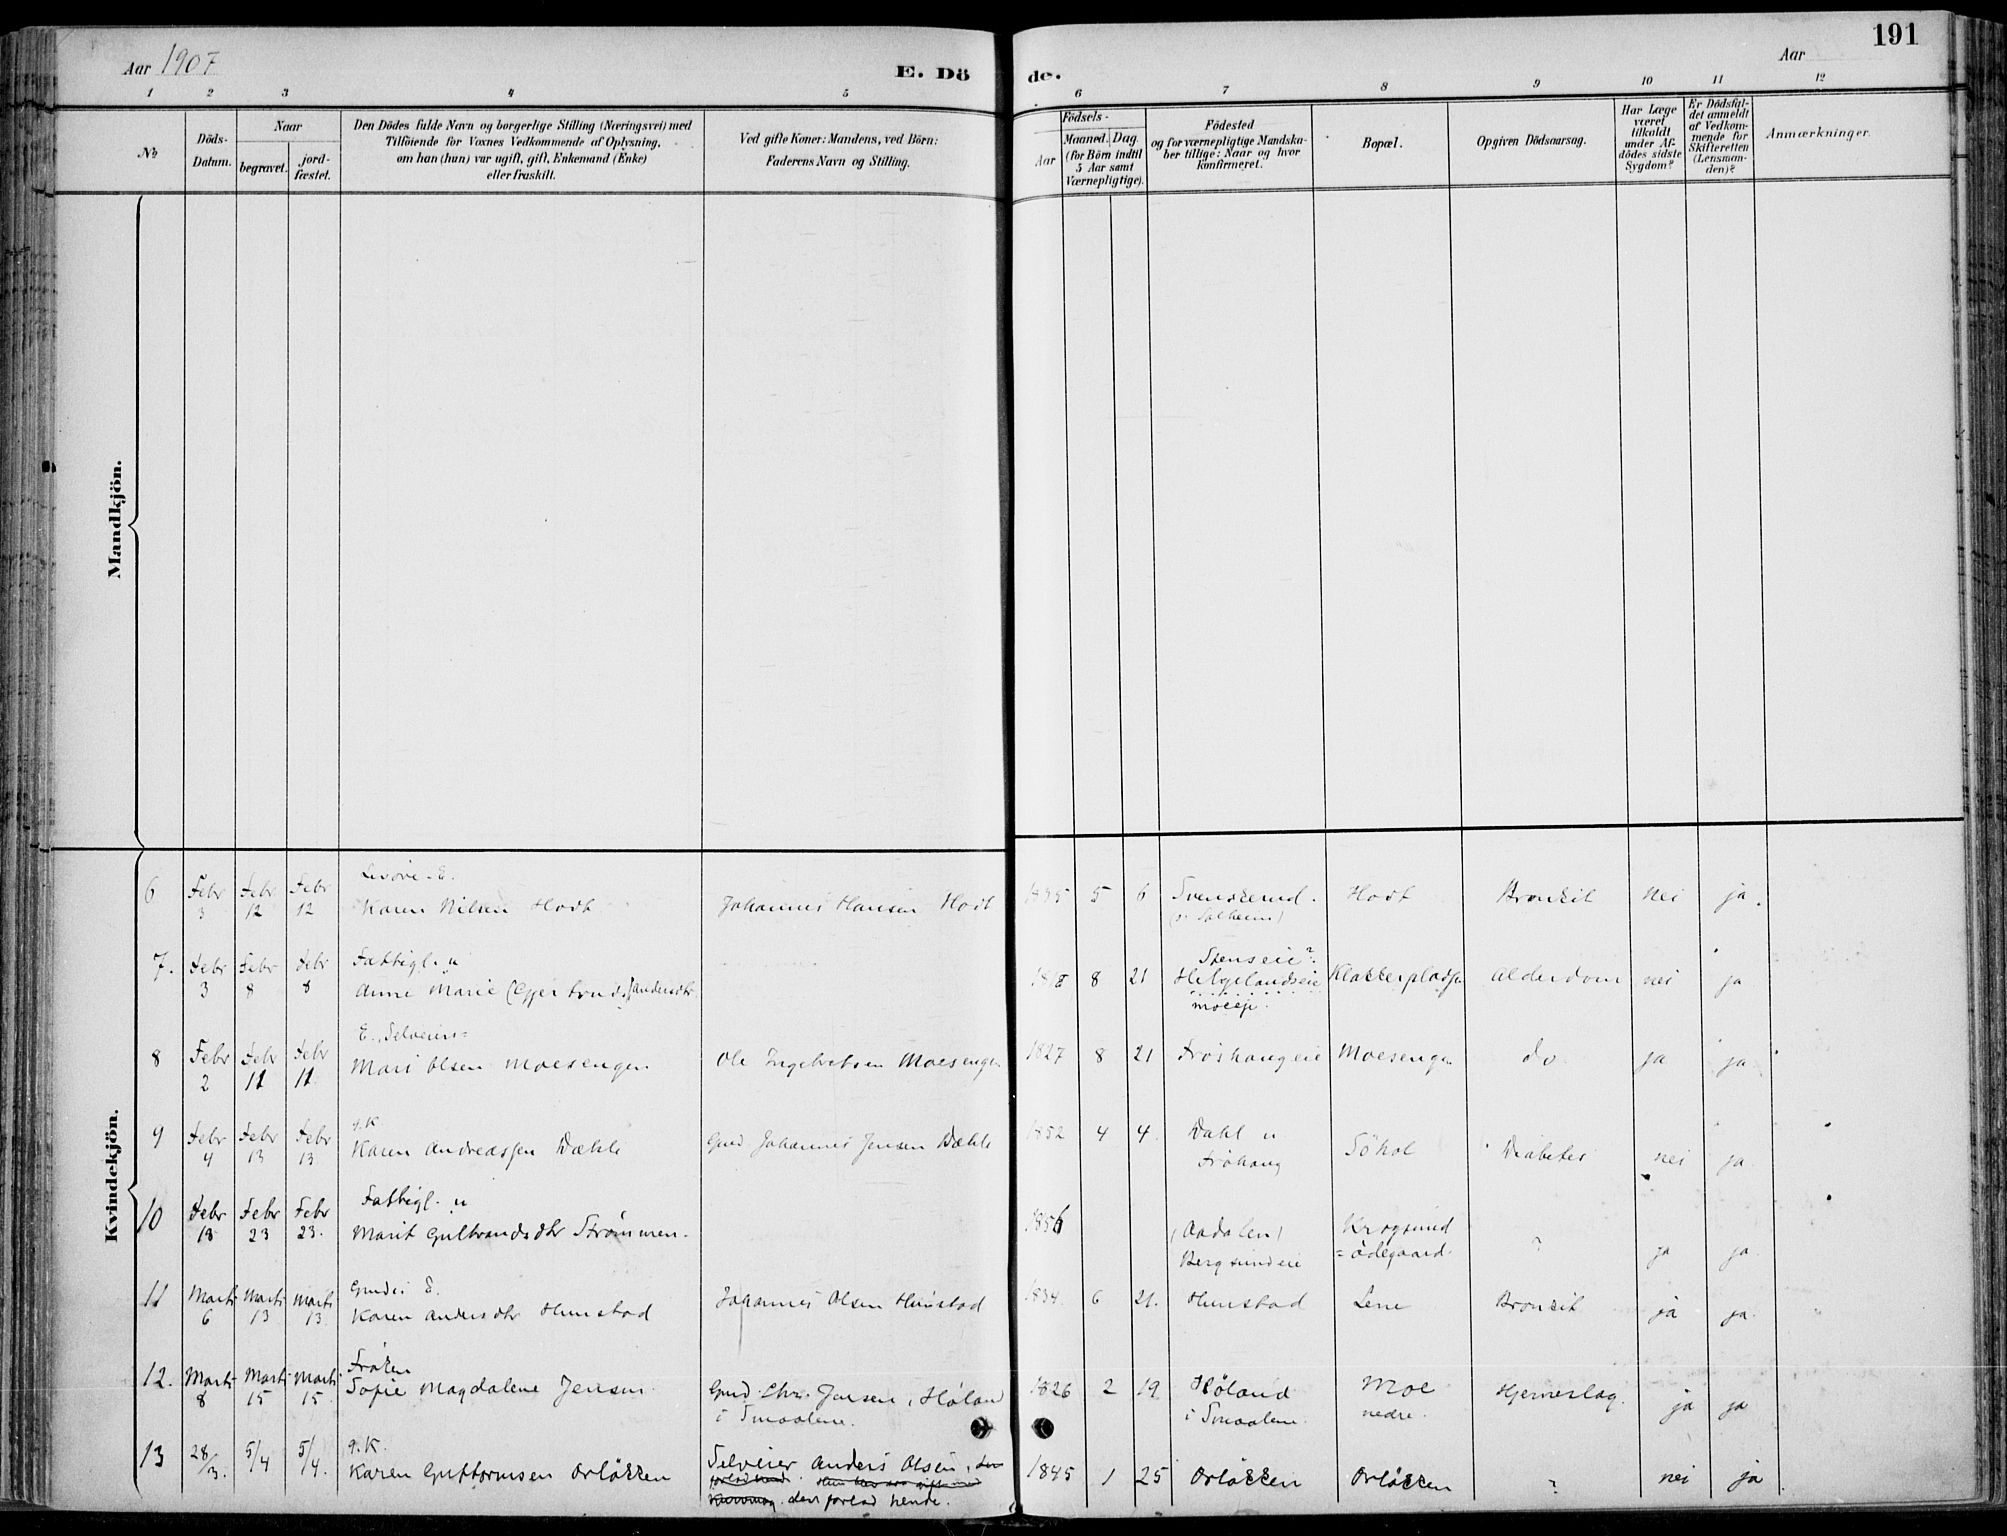 Aar 1907
E. Döde.
Aar
191
1 2 3 4 5 6 7 8 9 10 11 12
No
Döds-Datum.
Naar
begravet.
jord-fæstet.
Den Dödes fulde Navn og borgerlige Stilling (Næringsvei) med
Tilföiende for Voxnes Vedkommende af Oplysning,
om han (hun) var ugift, gift, Enkemand (Enke)
eller fraskilt.
Ved gifte Koner: Mandens, ved Börn:
Faderens Navn og Stilling.
Födsels-
Aar
Maaned.
Dag.
(for Börn indtil
5 Aar samt
Værnepligtige).
Födested
og for værnepligtige Mandska-
ber tillige: Naar og hvor
konfirmeret.
Bopæl.
Opgiven Dödsaarsag.
Har Læge
været
tilkaldt
under Af-
dödes sidste
Sygdom?
Er Dödsfal-
det anmeldt
af Vedkom-
mende for
Skifteretten
(Lensman-
den)?
Anmærkninger.
Mandkjön.
Kvindekjön.
6 Febr 3 Febr 12 Febr 12
Karen Nilsen Hodt
Johannes Hansen Hodt
1835 5 6 Svenskerud. Hodt Bronkit nei ja.
7. Febr 3 Febr 8 Febr 8
Fattigl. u
Anne Marie Andersdtr
8 21 Stenseie?
Helgelandseie
moeeje
Klækkerpladsen Alderdom nei ja
8 Febr 2 Febr 11 Febr 11
E. Selveiers=
Mari Olsen Moesengen
Ole Ingebretsen Moesengen
1827 8 21 Frøshaugeie Moesengen do ja ja
9 Febr 4 Febr 13 Febr 13
g.K
Karen Andreassen Dæhli
Gmd Johannes Jensen Dæhli
1852 4 4. Dahl u
Frøhaug
Søhol Diabetes nei ja
10 Febr 18 Febr 23 Febr 23.
Fattigl. u
Marit Gulbrandsdtr Strømmen.
1856 (Aadalen)
Bergsundeie
Krogsund
=ødegaard. ? ja ja
11 Marts 6 Marts 13 Marts 13
Gmds E.
Karen Andersdtr Hunstad
Johannes Olsen Hunstad
1834 6 21. Hunstad Lene Bronkit ja ja.
12. Marts 8 Marts 15 Marts 15.
Frøken
Sofie Magdalene Jensen
Gmd. Chr. Jensen, Høland
i Smaalene.
1826 2 19 Høland
i Smaalene
Moe
nedre. Hjerneslag ja ja
13 28/3. 5/4 5/4.
g.K.
Karen Guttormsen Orløkken
Selveier Anders Olsen,
den forlod hende.
1845 1 25 Orløkken Orløkken ? nei ja